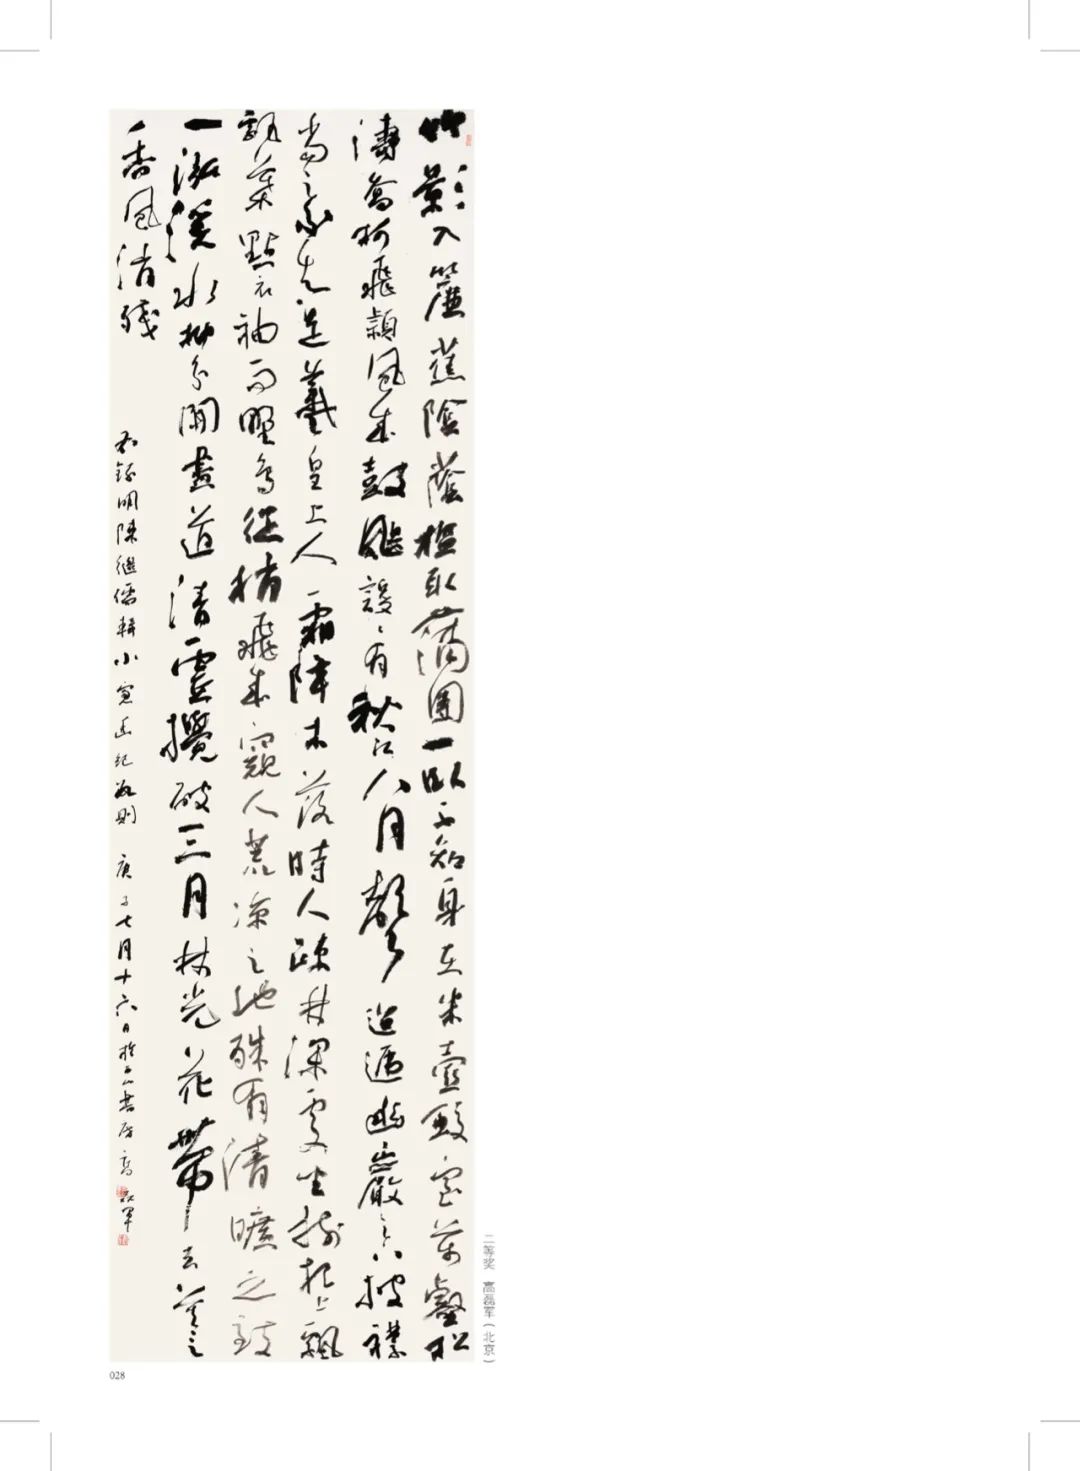 竹影入簾蕉陰蔭檻取蒲團一臥不知身在冰壺鮫室萬壑松
濤喬柯飛穎風來鼓颭謖謖有秋江八月聲迢遞幽巖之下披襟
當之是羲皇上人霜降木落時入疎林深處坐樹根上飄
飄葉點衣袖而野鳥從梢飛來窺人荒涼之地殊有清曠之致
一泓溪水柳分開盡道清虛攪破三月林光花帶去莫言
香風消殘
右錄明陳繼儒輯小窗幽紀數則 庚子七月十六日於書房 高磊軍
二等奖 高磊军（北京）
028